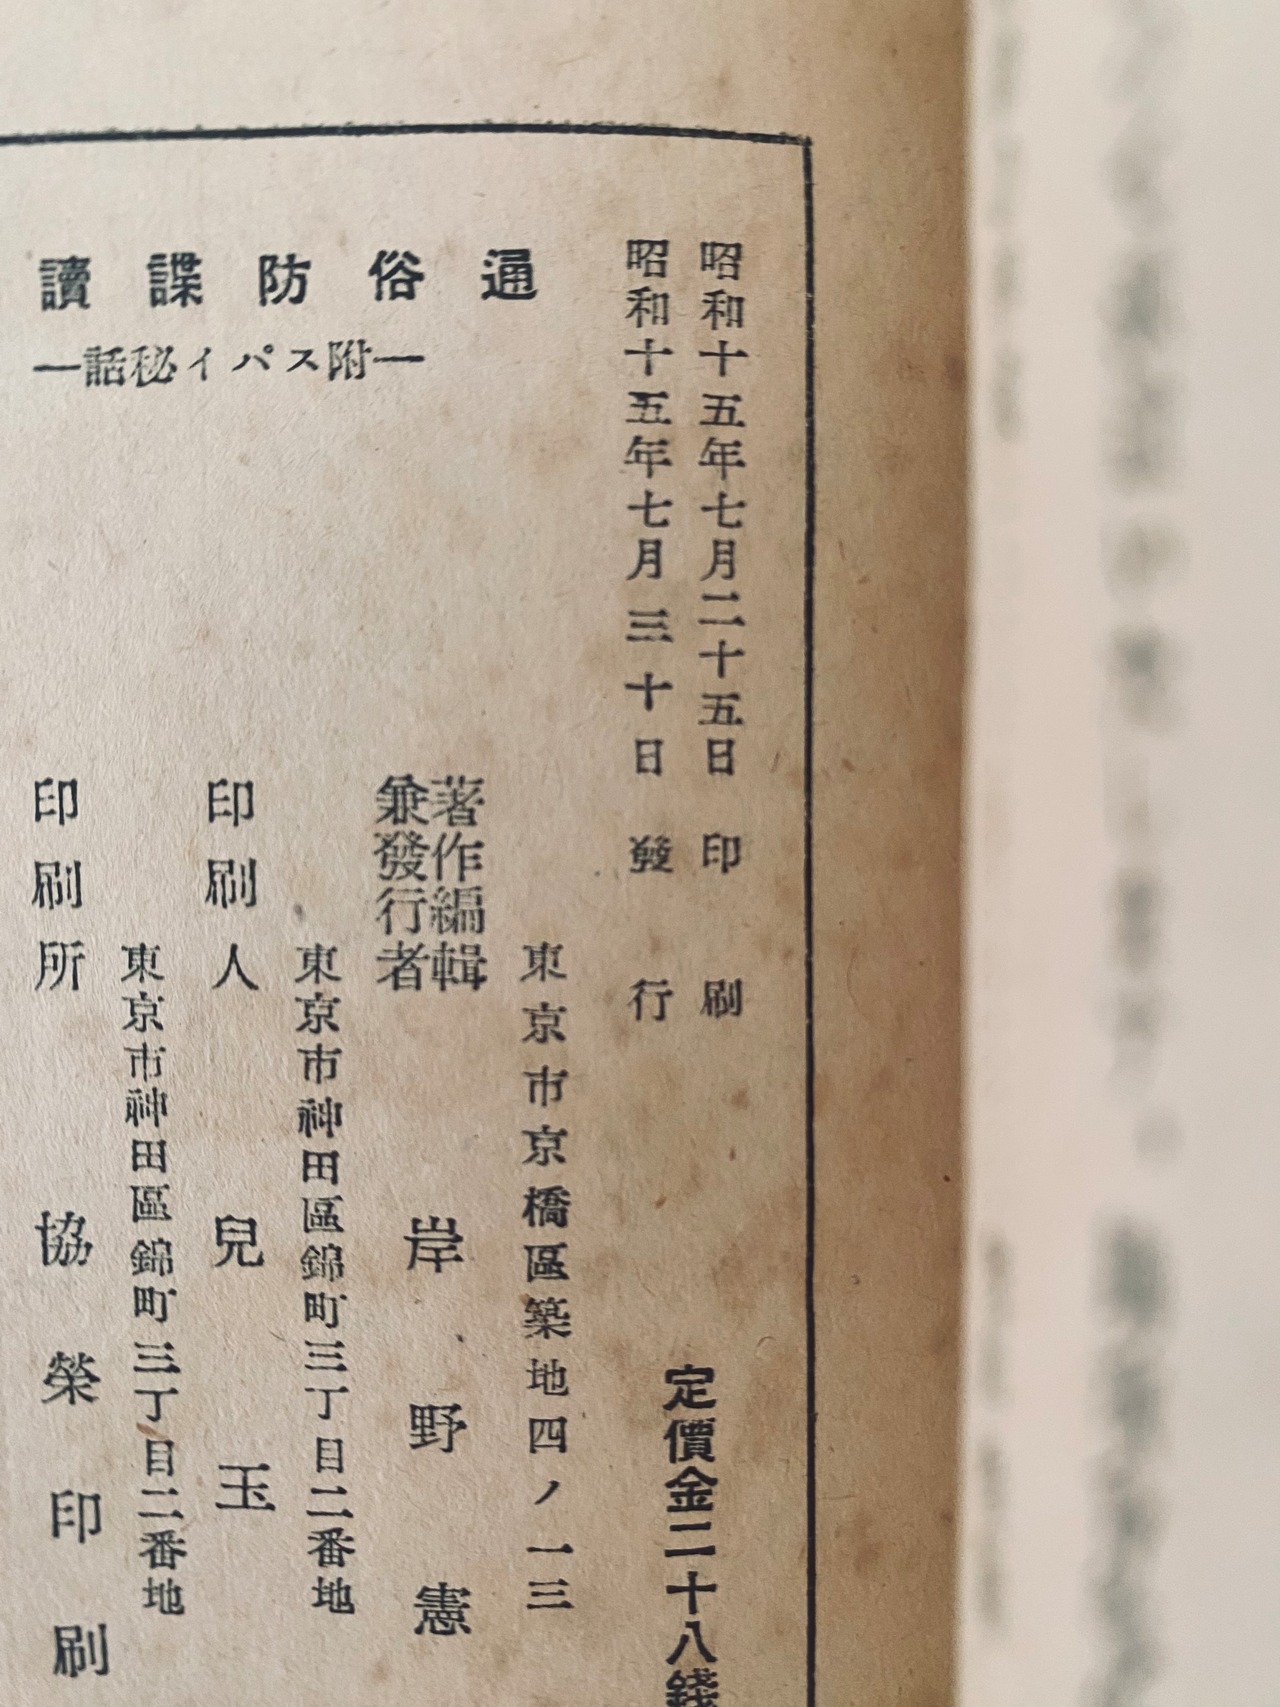 昭和十五年七月二十五日印刷
昭和十五年七月三十日發行
定價金二十八錢
通俗防諜讀
―附スパイ秘話―
東京市京橋區築地四ノ一三
著作編輯
兼發行者
岸野憲
東京市神田區錦町三丁目二番地
印刷人 兒玉
東京市神田區錦町三丁目二番地
印刷所 協榮印刷